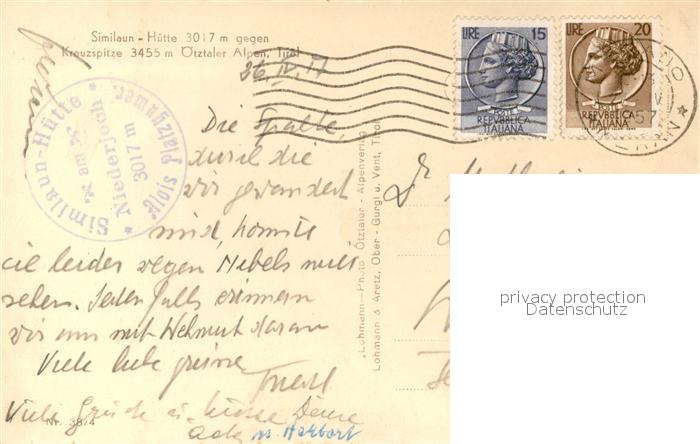 Similaun - Hütte 3017 m gegen
Kreuzspitze 3455 m Ötztaler Alpen, Tirol
26. IV. 57
LIRE 15
POSTE
REPVBBLICA
ITALIANA
LIRE 20
POSTE
REPVBBLICA
ITALIANA
Similaun-Hütte
am
Niederjoch
3017 m
Alois Platzgumer
Die Spalte,
durch die
wir gewandert
sind, konnte
ich leider wegen Nebels nicht
sehen. Jedenfalls erinnern
wir uns mit Wehmut daran
Viele liebe Grüsse
Viele Grüsse u. Küsse Deine
u. Herbert
Nr. 38/4
Lohmann-Photo Ötztaler - Alpenverlag
Lohmann & Aretz, Ober - Gurgl u. Vent, Tirol
Dr
privacy protection
Datenschutz